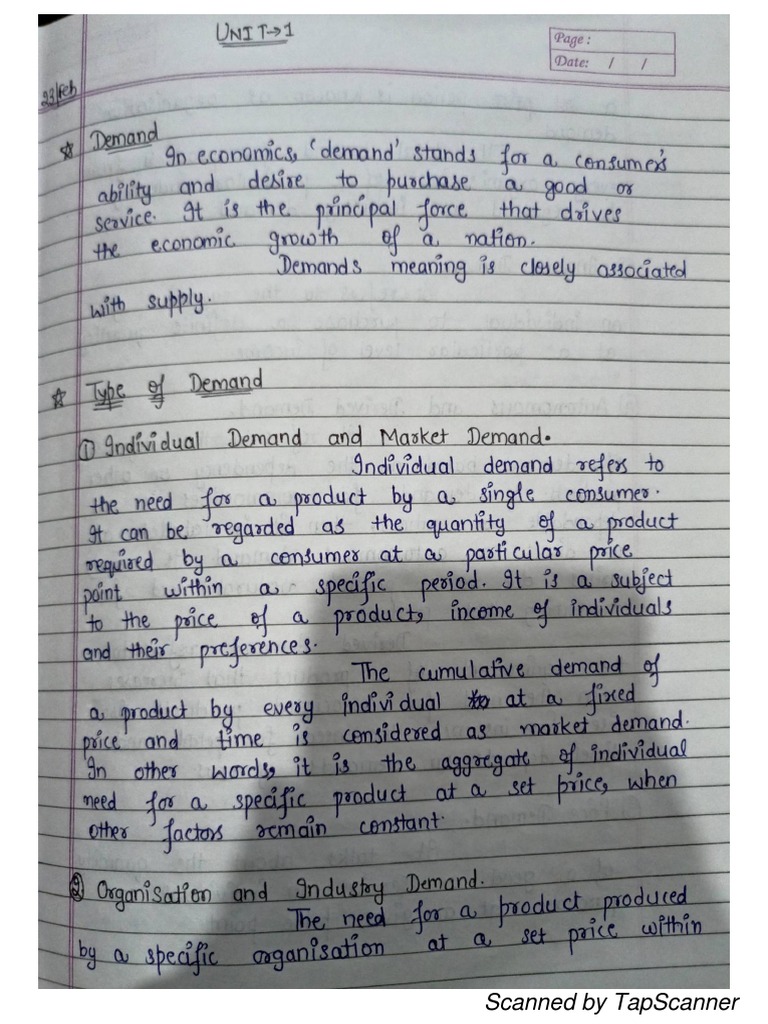 UNIT→1
Page :
Date: / /
23/Feb
☆ Demand
In economics, 'demand' stands for a consumer's
ability and desire to purchase a good or
service. It is the principal force that drives
the economic growth of a nation.
Demands meaning is closely associated
with supply.
☆ Type of Demand
① Individual Demand and Market Demand.
Individual demand refers to
the need for a product by a single consumer.
It can be regarded as the quantity of a product
required by a consumer at a particular price
point within a specific period. It is a subject
to the price of a product, income of individuals
and their preferences.
The cumulative demand of
a product by every individual at a fixed
price and time is considered as market demand.
In other words, it is the aggregate of individual
need for a specific product at a set price, when
other factors remain constant.
② Organisation and Industry Demand.
The need for a product produced
by a specific organisation at a set price within
Scanned by TapScanner